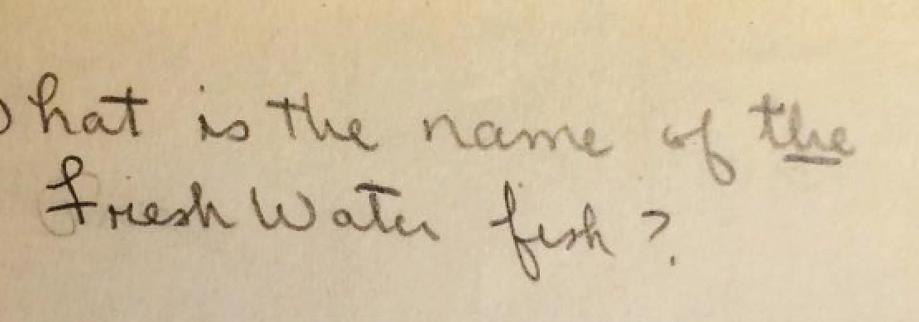 What is the name of the
Fresh Water fish?